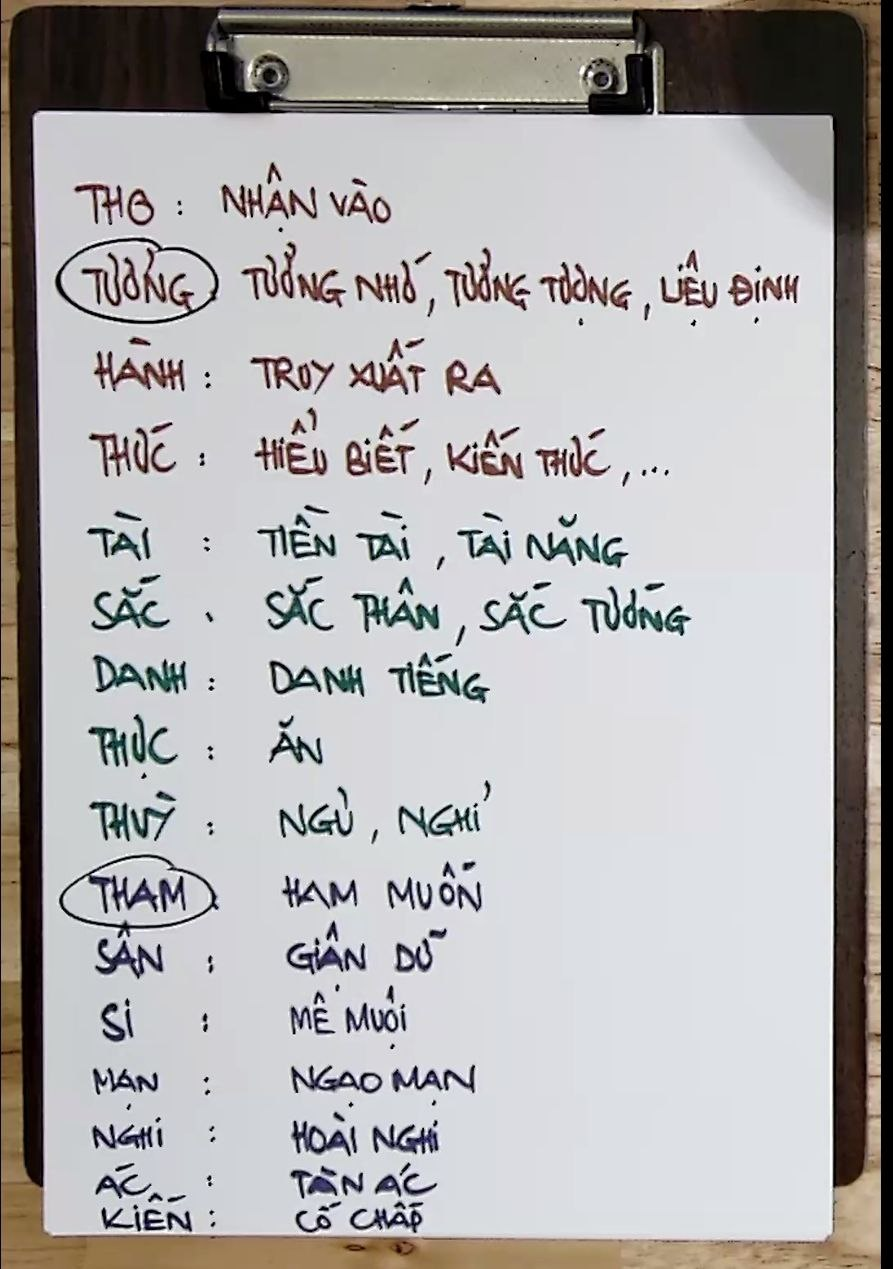 THỌ : NHẬN VÀO
TƯỞNG : TƯỞNG NHỚ, TƯỞNG TƯỢNG, LIỆU ĐỊNH
HÀNH : TRUY XUẤT RA
THỨC : HIỂU BIẾT, KIẾN THỨC, ...
TÀI : TIỀN TÀI, TÀI NĂNG
SẮC : SẮC THÂN, SẮC TƯỚNG
DANH : DANH TIẾNG
THỰC : ĂN
THUỲ : NGỦ, NGHỈ
THAM : HAM MUỐN
SÂN : GIẬN DỮ
SI : MÊ MUỘI
MẠN : NGẠO MẠN
NGHI : HOÀI NGHI
ÁC : TÀN ÁC
KIẾN : CỐ CHẤP